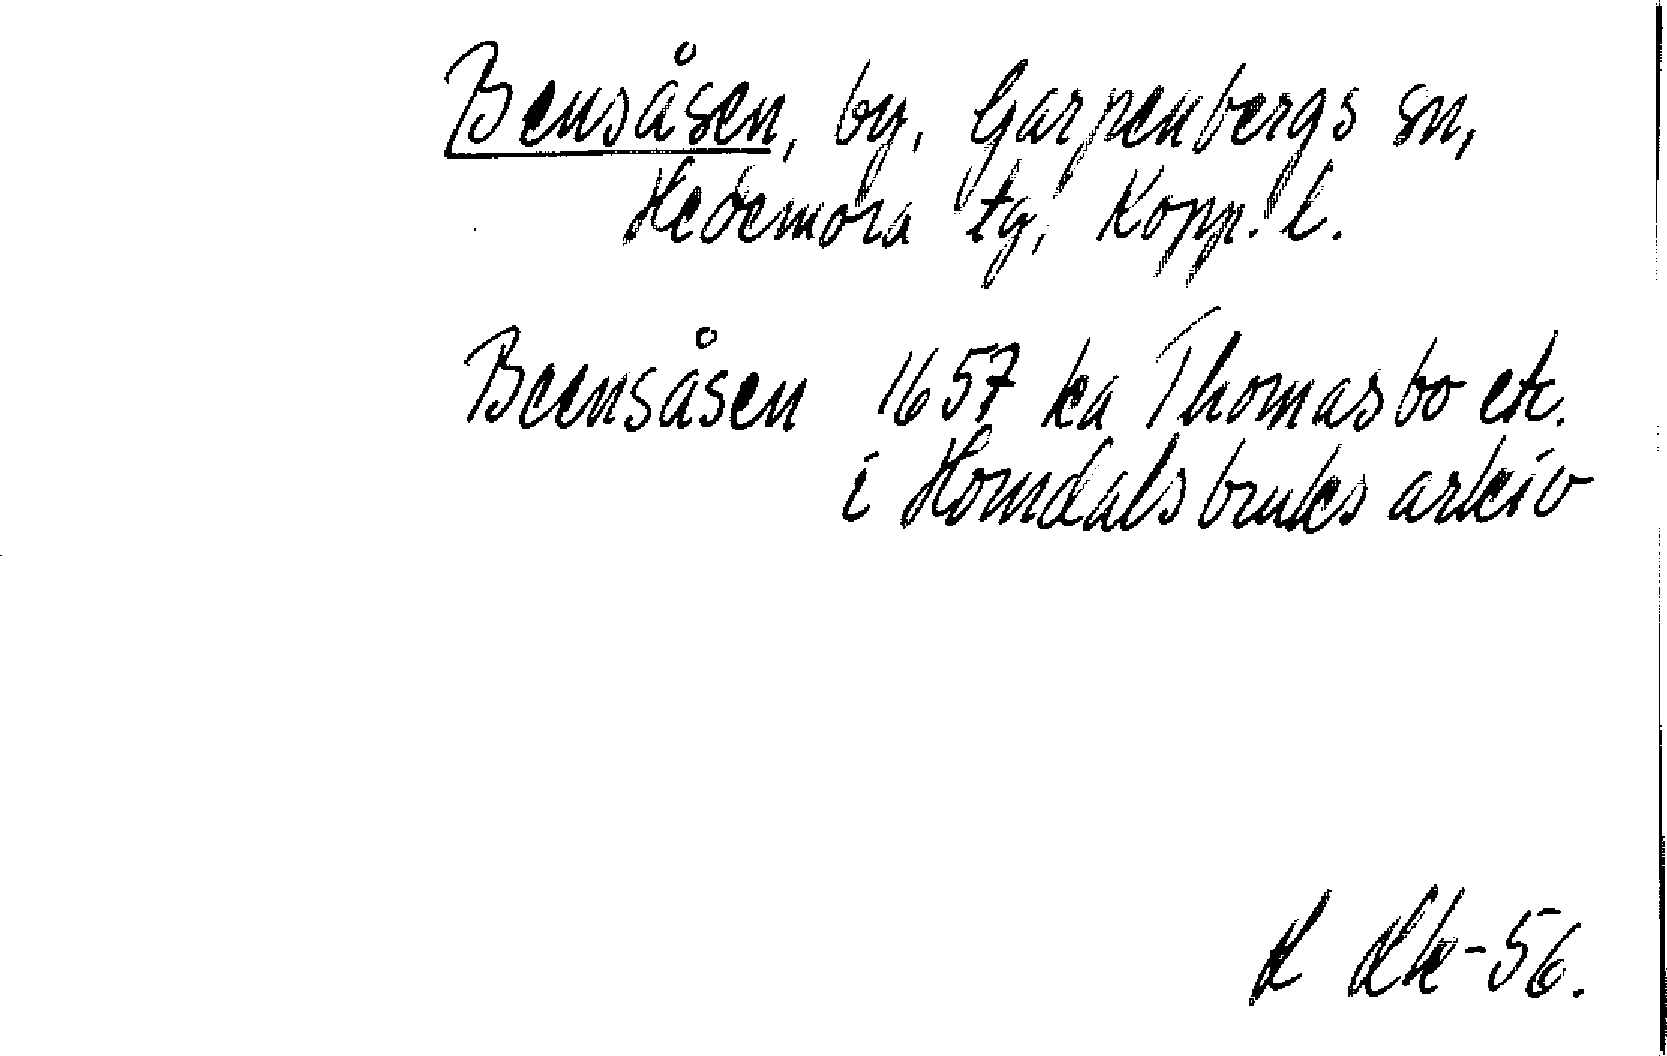 Bensåsen, by, Garpenbergs sn,
Hedemora tg, Kopp. l.
Beensåsen 1657 ka Thomasbo etc.
i Horndals bruks arkiv
-56.